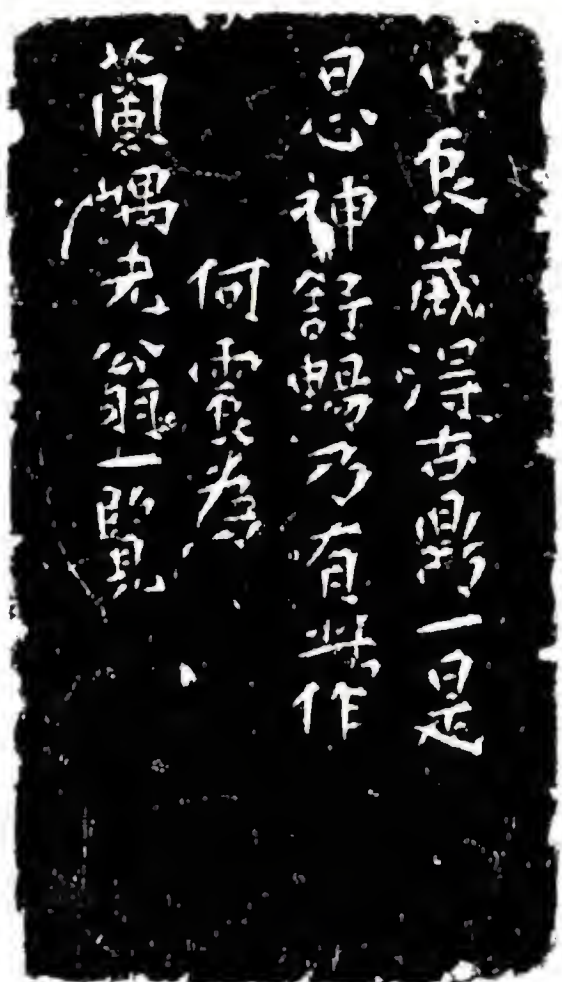 甲辰歲得古鼎一是
日心神舒暢乃有此作
何震為
蘭嵎老翁一覽